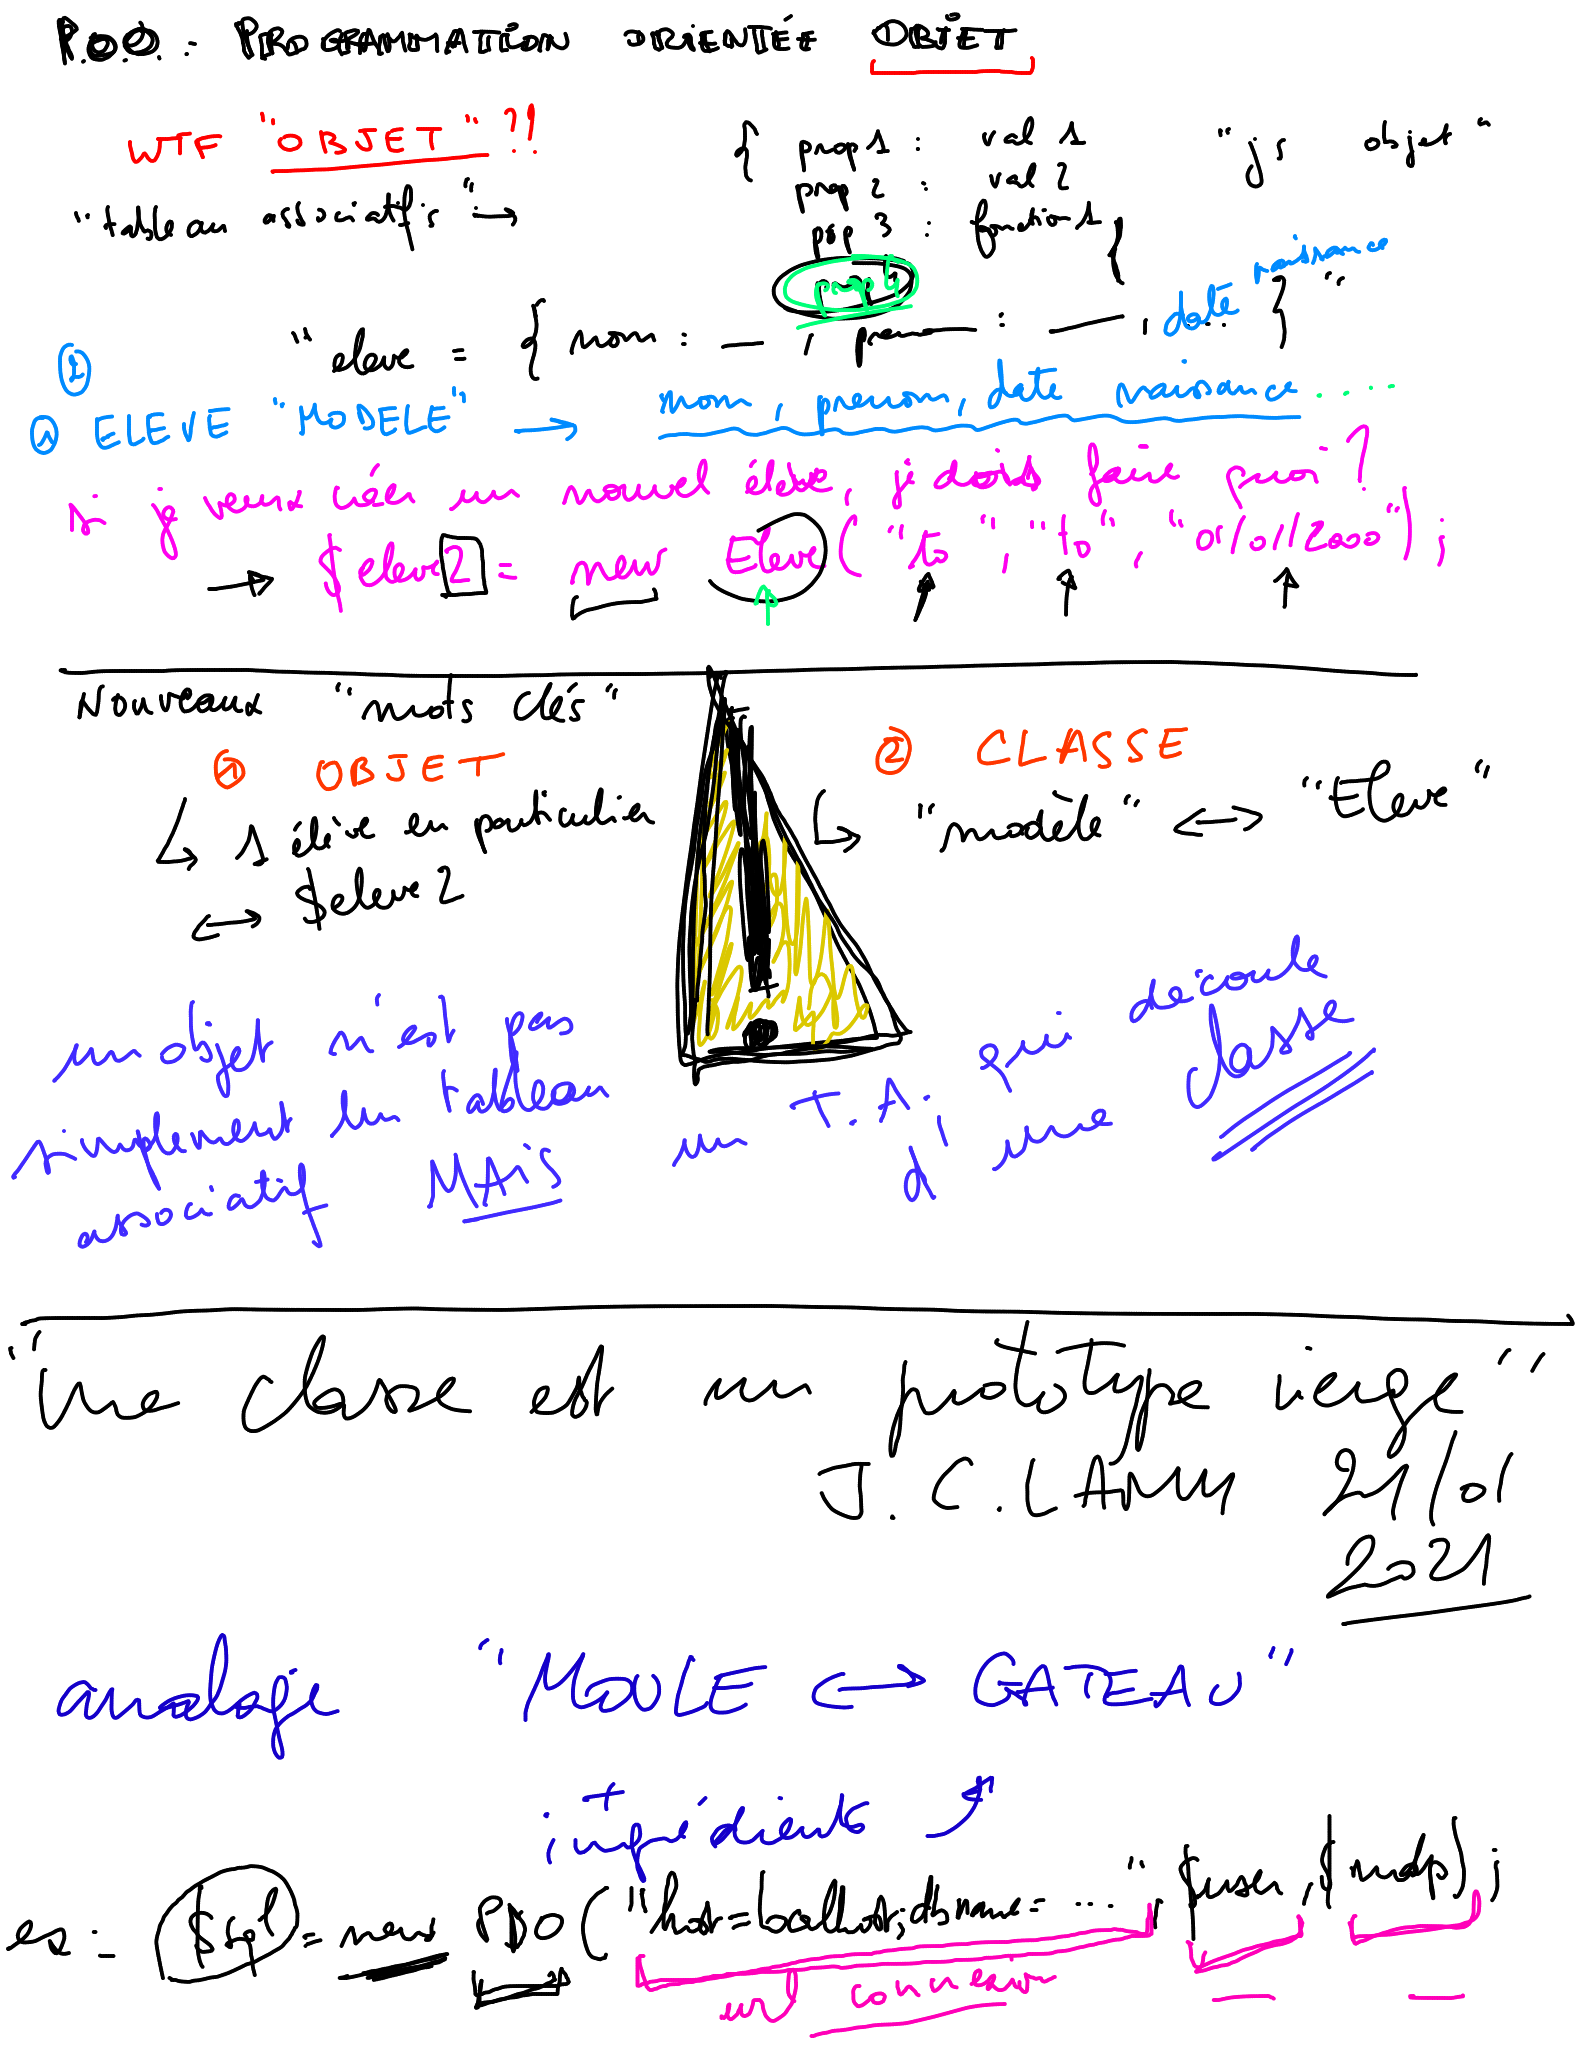 P.O.O. : PROGRAMMATION ORIENTÉE OBJET
WTF "OBJET" ?!
"tableau associatifs" →
{ prop 1 : val 1
prop 2 : val 2
prop 3 : fonction 1 {
prop 4
"js objet"
"eleve = { nom : — , prenom : — , date naissance ... }"
①
① ELEVE "MODELE" → nom, prenom, date naissance ....
si je veux créer un nouvel élève, je dois faire quoi ?
→ $eleve2 = new Eleve("to", "to", "01/01/2000");
Nouveaux "mots clés"
① OBJET
↳ 1 élève en particulier
↔ $eleve2
② CLASSE
↳ "modèle" ↔ "Eleve"
!
un objet n'est pas
simplement un tableau
associatif MAIS un T.A. qui découle
d'une classe
"Une classe est un prototype vierge"
J.C.LAMY 21/01
2021
analogie "MOULE ↔ GATEAU"
+
ingrédients
ex : $sql = new PDO("host=localhost;dbname=....", $user, $mdp);
url connexion